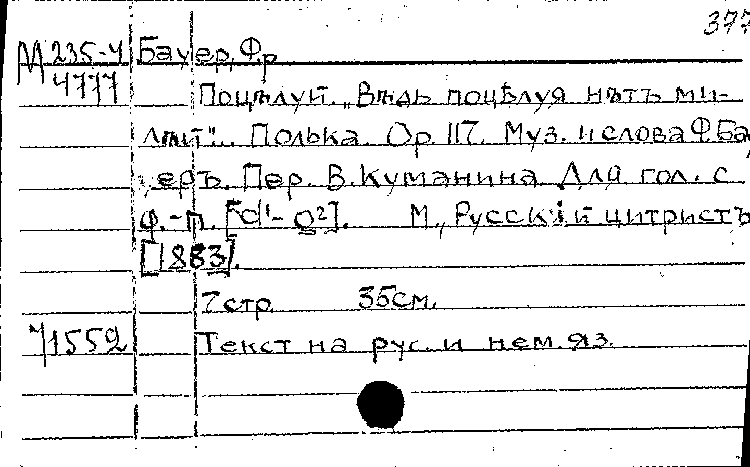 377
М 235-4 Бауер, Фр
4777 Поцѣлуй. „Вѣдь поцѣлуя нѣтъ ми-
лѣй".. Полька. Ор 117. Муз. и слова Ф. Ба
уеръ. Пер. В. Куманина Для гол. с
ф.-п. [d¹-g²]. М., Русскій цитристъ
[1883].
7 стр 35 см.
71552 Текст на рус. и нем. яз.